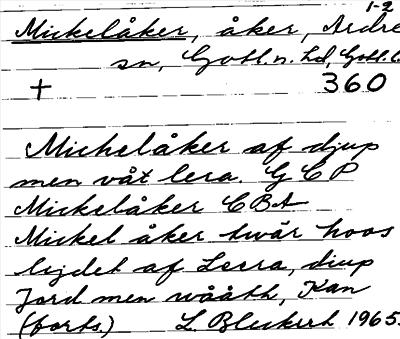 1-2
Mickelåker, åker, Ardre
sn, Gotl. n. hd, Gotl. l.
+ 360
Michelåker af djup
men våt lera. G C P
Mickelåker C B A
Mickel åker twär hoos
lijdet af Leera, diup
Jord men wååth, Kan
(forts.) L. Bleckert 1965.